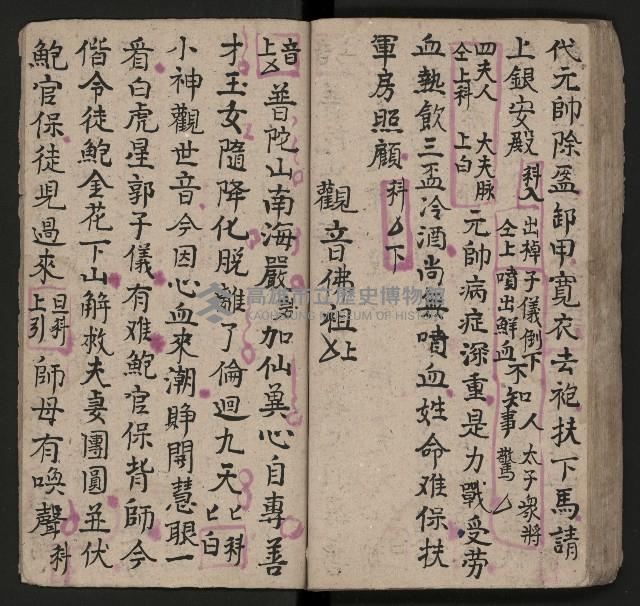 代元帥除盔卸甲寬衣去袍扶下馬請
上銀安殿 科入 出棹子儀倒下 太子衆將
仝上噴出鮮血不知人事驚
四夫人 大夫脉
仝上科 上白 元帥病症深重是力戰受劳
血熱飲三盃冷酒尚無噴血姓命难保扶
軍房照顧 科 下
觀音佛祖上
音上 普陀山南海嚴 加仙奠心自專善
才玉女隨降化脱離了倫迴九天 科白
小神觀世音今因心血來潮睜開慧眼一
看白虎星郭子儀有难鮑官保背師今
偕令徒鮑金花下山解救夫妻團圓並伏
鮑官保徒見過來 旦科上引 師母有喚聲 科
高雄市立歷史博物館
KAOHSIUNG MUSEUM OF HISTORY